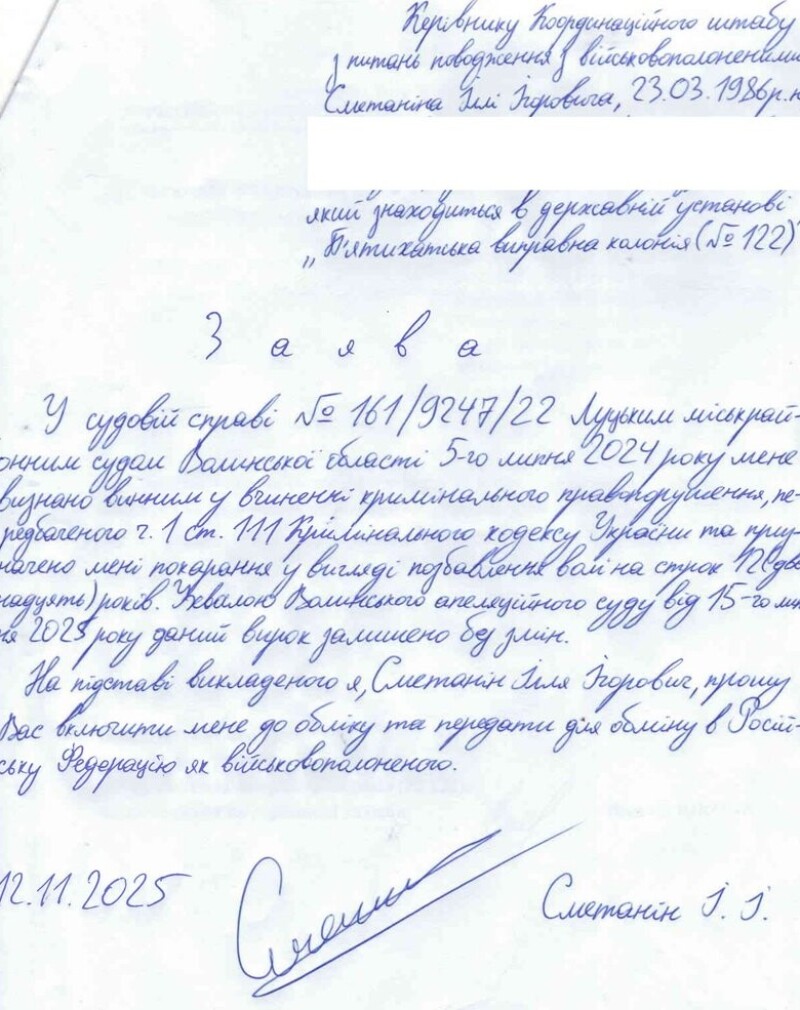 Керівнику Координаційного штабу
з питань поводження з військовополоненими
Сметаніна Іллі Ігоровича, 23.03.1986р.н
який знаходиться в державній установі
„П'ятихатська виправна колонія (№ 122)"
Заява
У судовій справі № 161/9247/22 Луцьким міськрай-
онним судом Волинської області 5-го липня 2024 року мене
визнано винним у вчиненні кримінального правопорушення, пе-
редбаченого ч. 1 ст. 111 Кримінального кодексу України та приз-
начено мені покарання у вигляді позбавлення волі на строк 12 (два
надцять) років. Ухвалою Волинського апеляційного суду від 15-го
2025 року даний вирок залишено без змін.
На підставі викладеного я, Сметанін Ілля Ігорович, прошу
Вас включити мене до обліку та передати для обміну в Росій-
ську Федерацію як військовополоненого.
12.11.2025 Сметанін І. І.